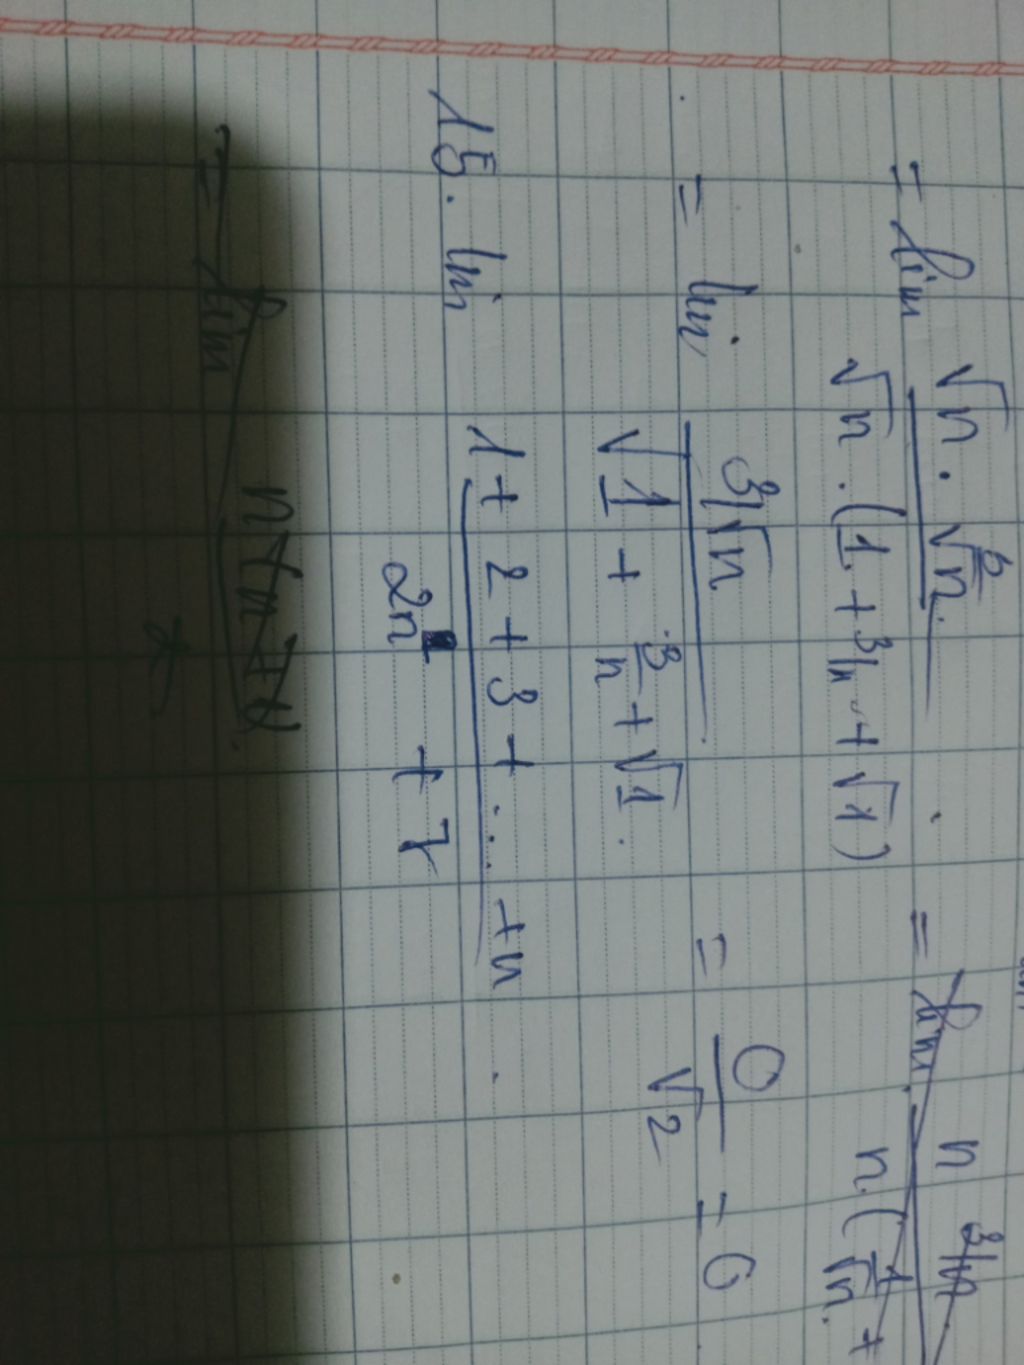 = lim √n . √3/n / √n . (1 + 3/n + √1) = lim n 3/n / n (1/√n +
= lim 3/√n / √1 + 3/n + √1 = 0/√2 = 0
15. lim 1 + 2 + 3 + ... + n / 2n + 7
= lim